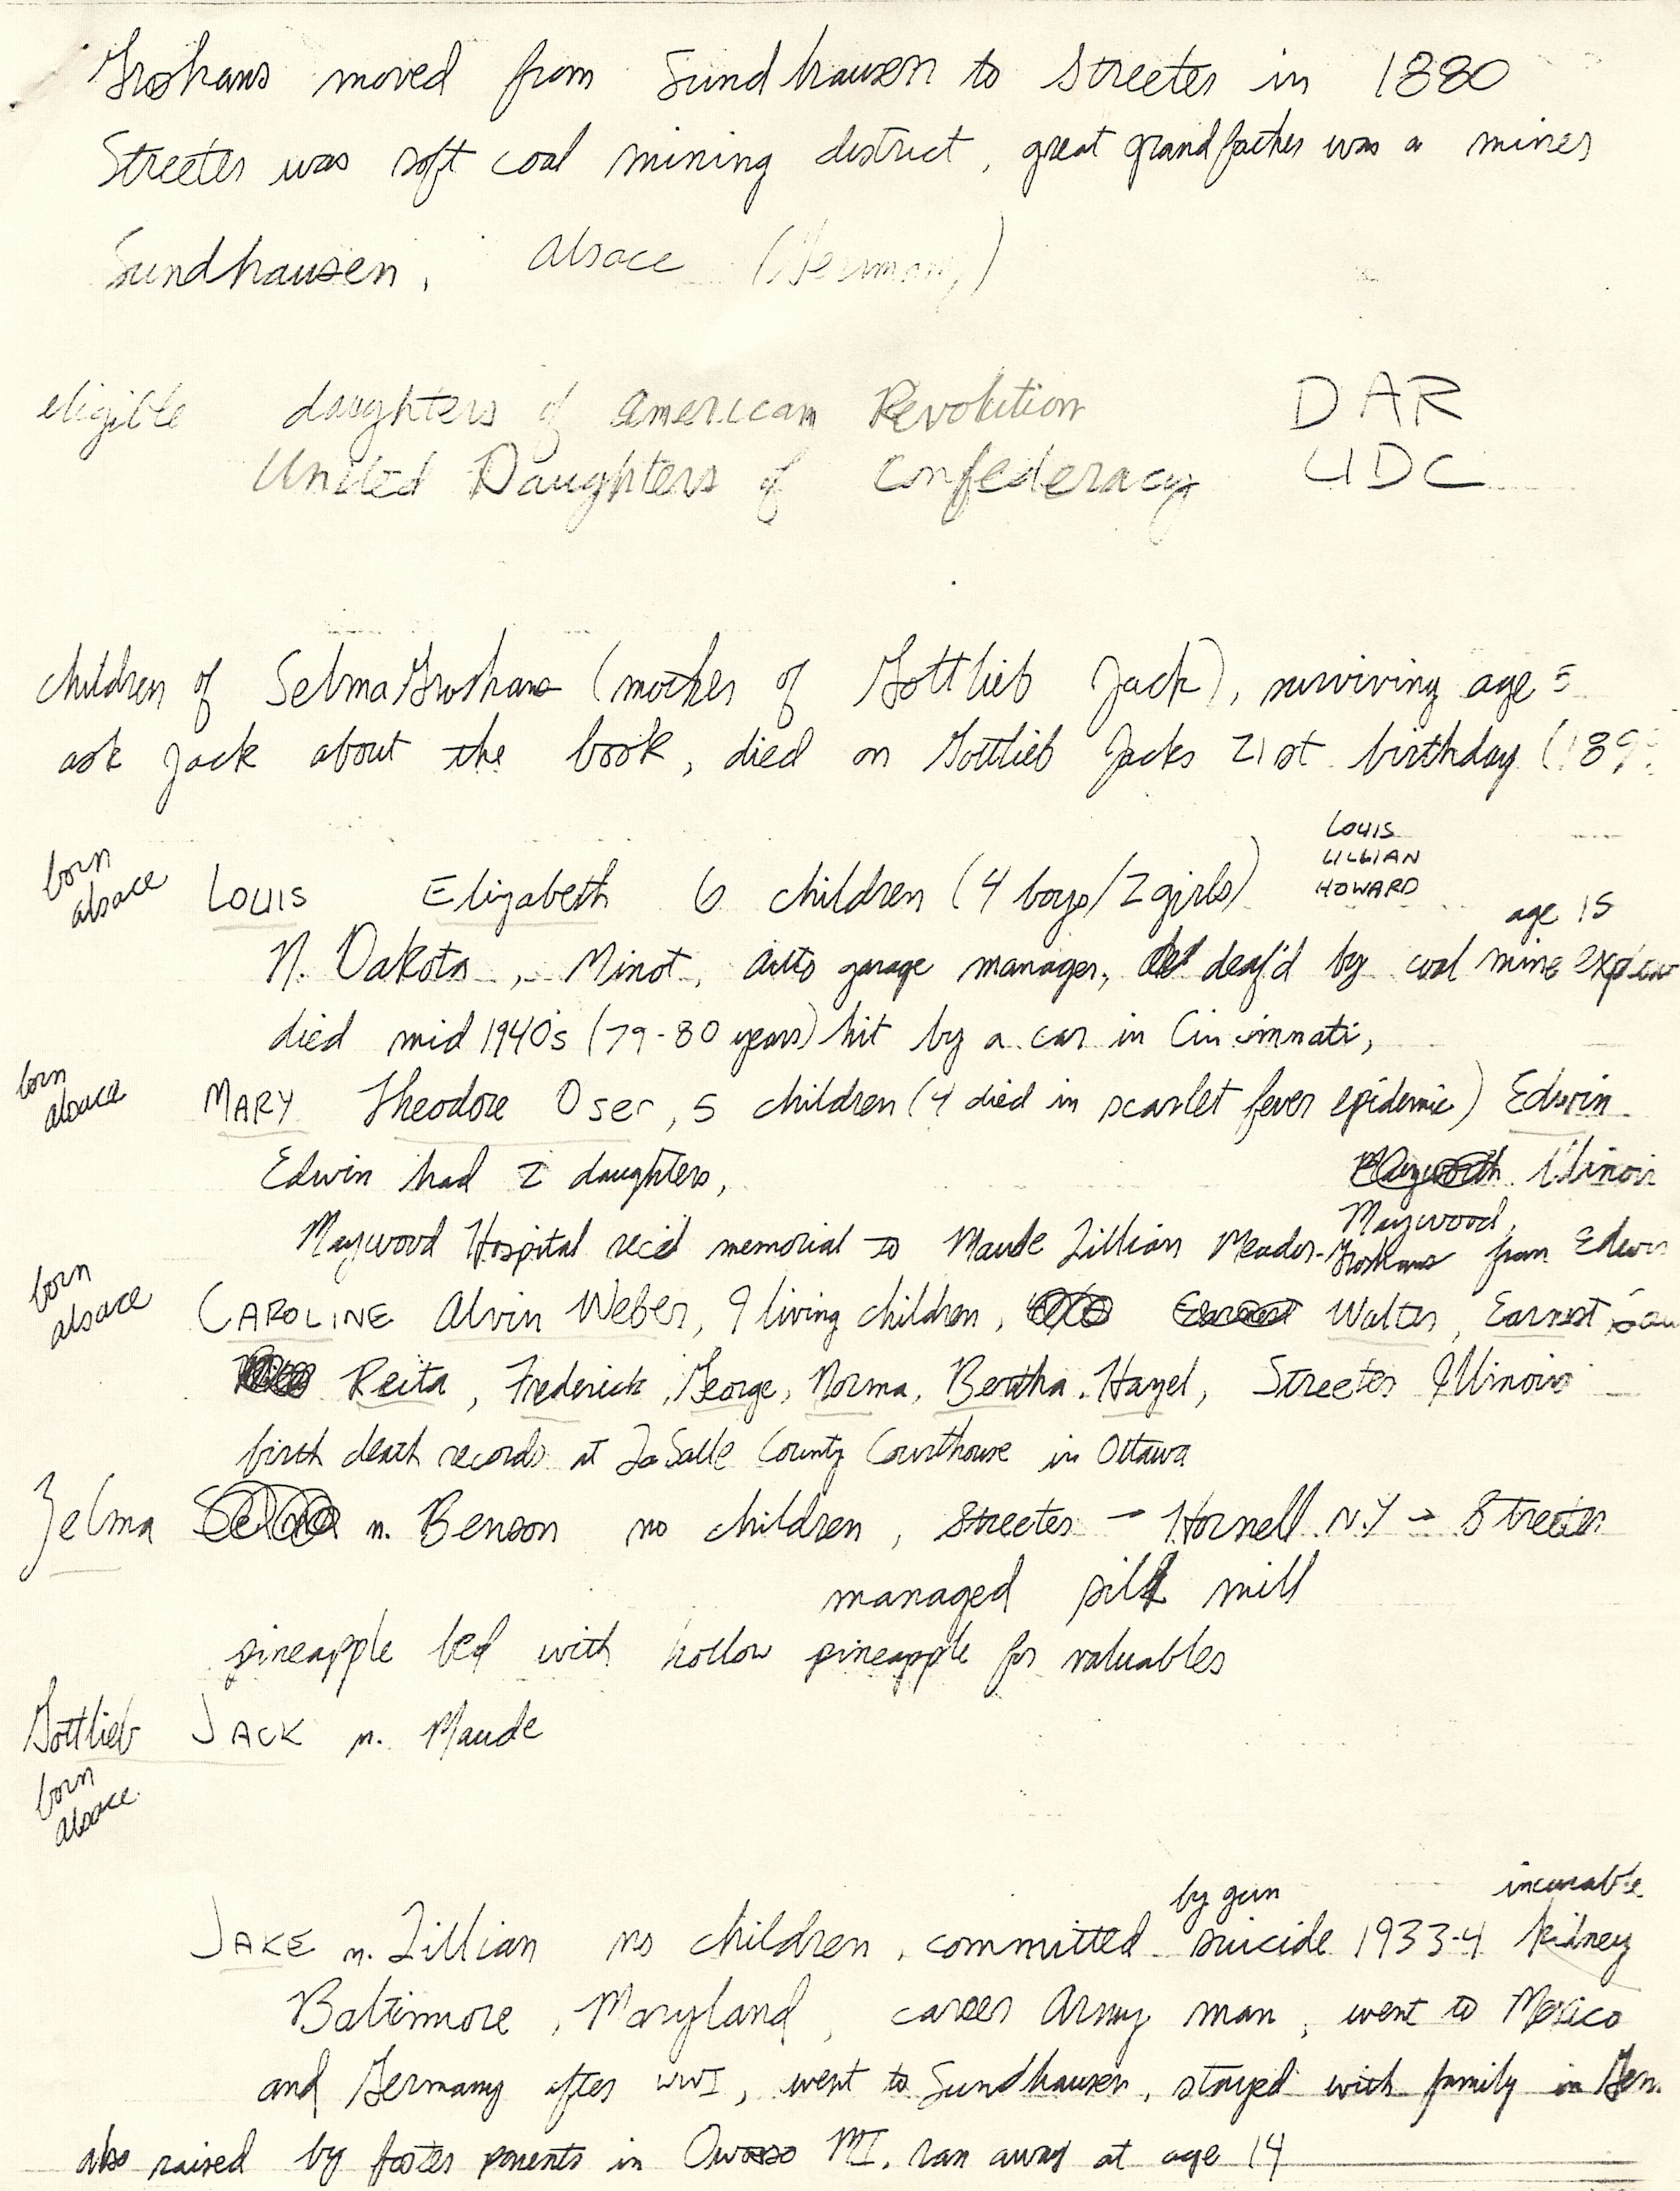 Groshans moved from Sundhausen to Streeter in 1880
Streeter was soft coal mining district, great grandfather was a miner
Sundhausen, Alsace (Germany)
eligible daughters of American Revolution DAR
United Daughters of Confederacy UDC
children of Selma Groshans (mother of Gottlieb Jack), surviving age
ask Jack about the book, died on Gottlieb Jacks 21st birthday (189
LOUIS
LILLIAN
HOWARD
born alsace LOUIS Elizabeth 6 children (4 boys/2 girls)
age 15
N. Dakota, Minot, auto garage manager, deaf'd by coal mine
died mid 1940's (79-80 years) hit by a car in Cincinnati,
born alsace MARY Theodore Oser, 5 children (4 died in scarlet fever epidemic) Edwin
Edwin had 2 daughters, Illinois
Maywood,
Maywood Hospital rec'd memorial to Maude Lillian Meader-Groshans from Edwin
born alsace CAROLINE Alvin Weber, 9 living children, Walter, Earnest
Reita, Frederick, George, Norma, Bertha, Hazel, Streeter Illinois
birth death records at LaSalle County Courthouse in Ottawa
Zelma m. Benson no children, Streeter - Hornell N.Y - Streeter
managed silk mill
pineapple bed with hollow pineapple for valuables
Gottlieb JACK m. Maude
born alsace
by gun incurable
JAKE m. Lillian no children, committed suicide 1933-4 kidney
Baltimore, Maryland, career Army man, went to Mexico
and Germany after WWI, went to Sundhausen, stayed with family in Ger.
also raised by foster parents in Owosso MI. ran away at age 14